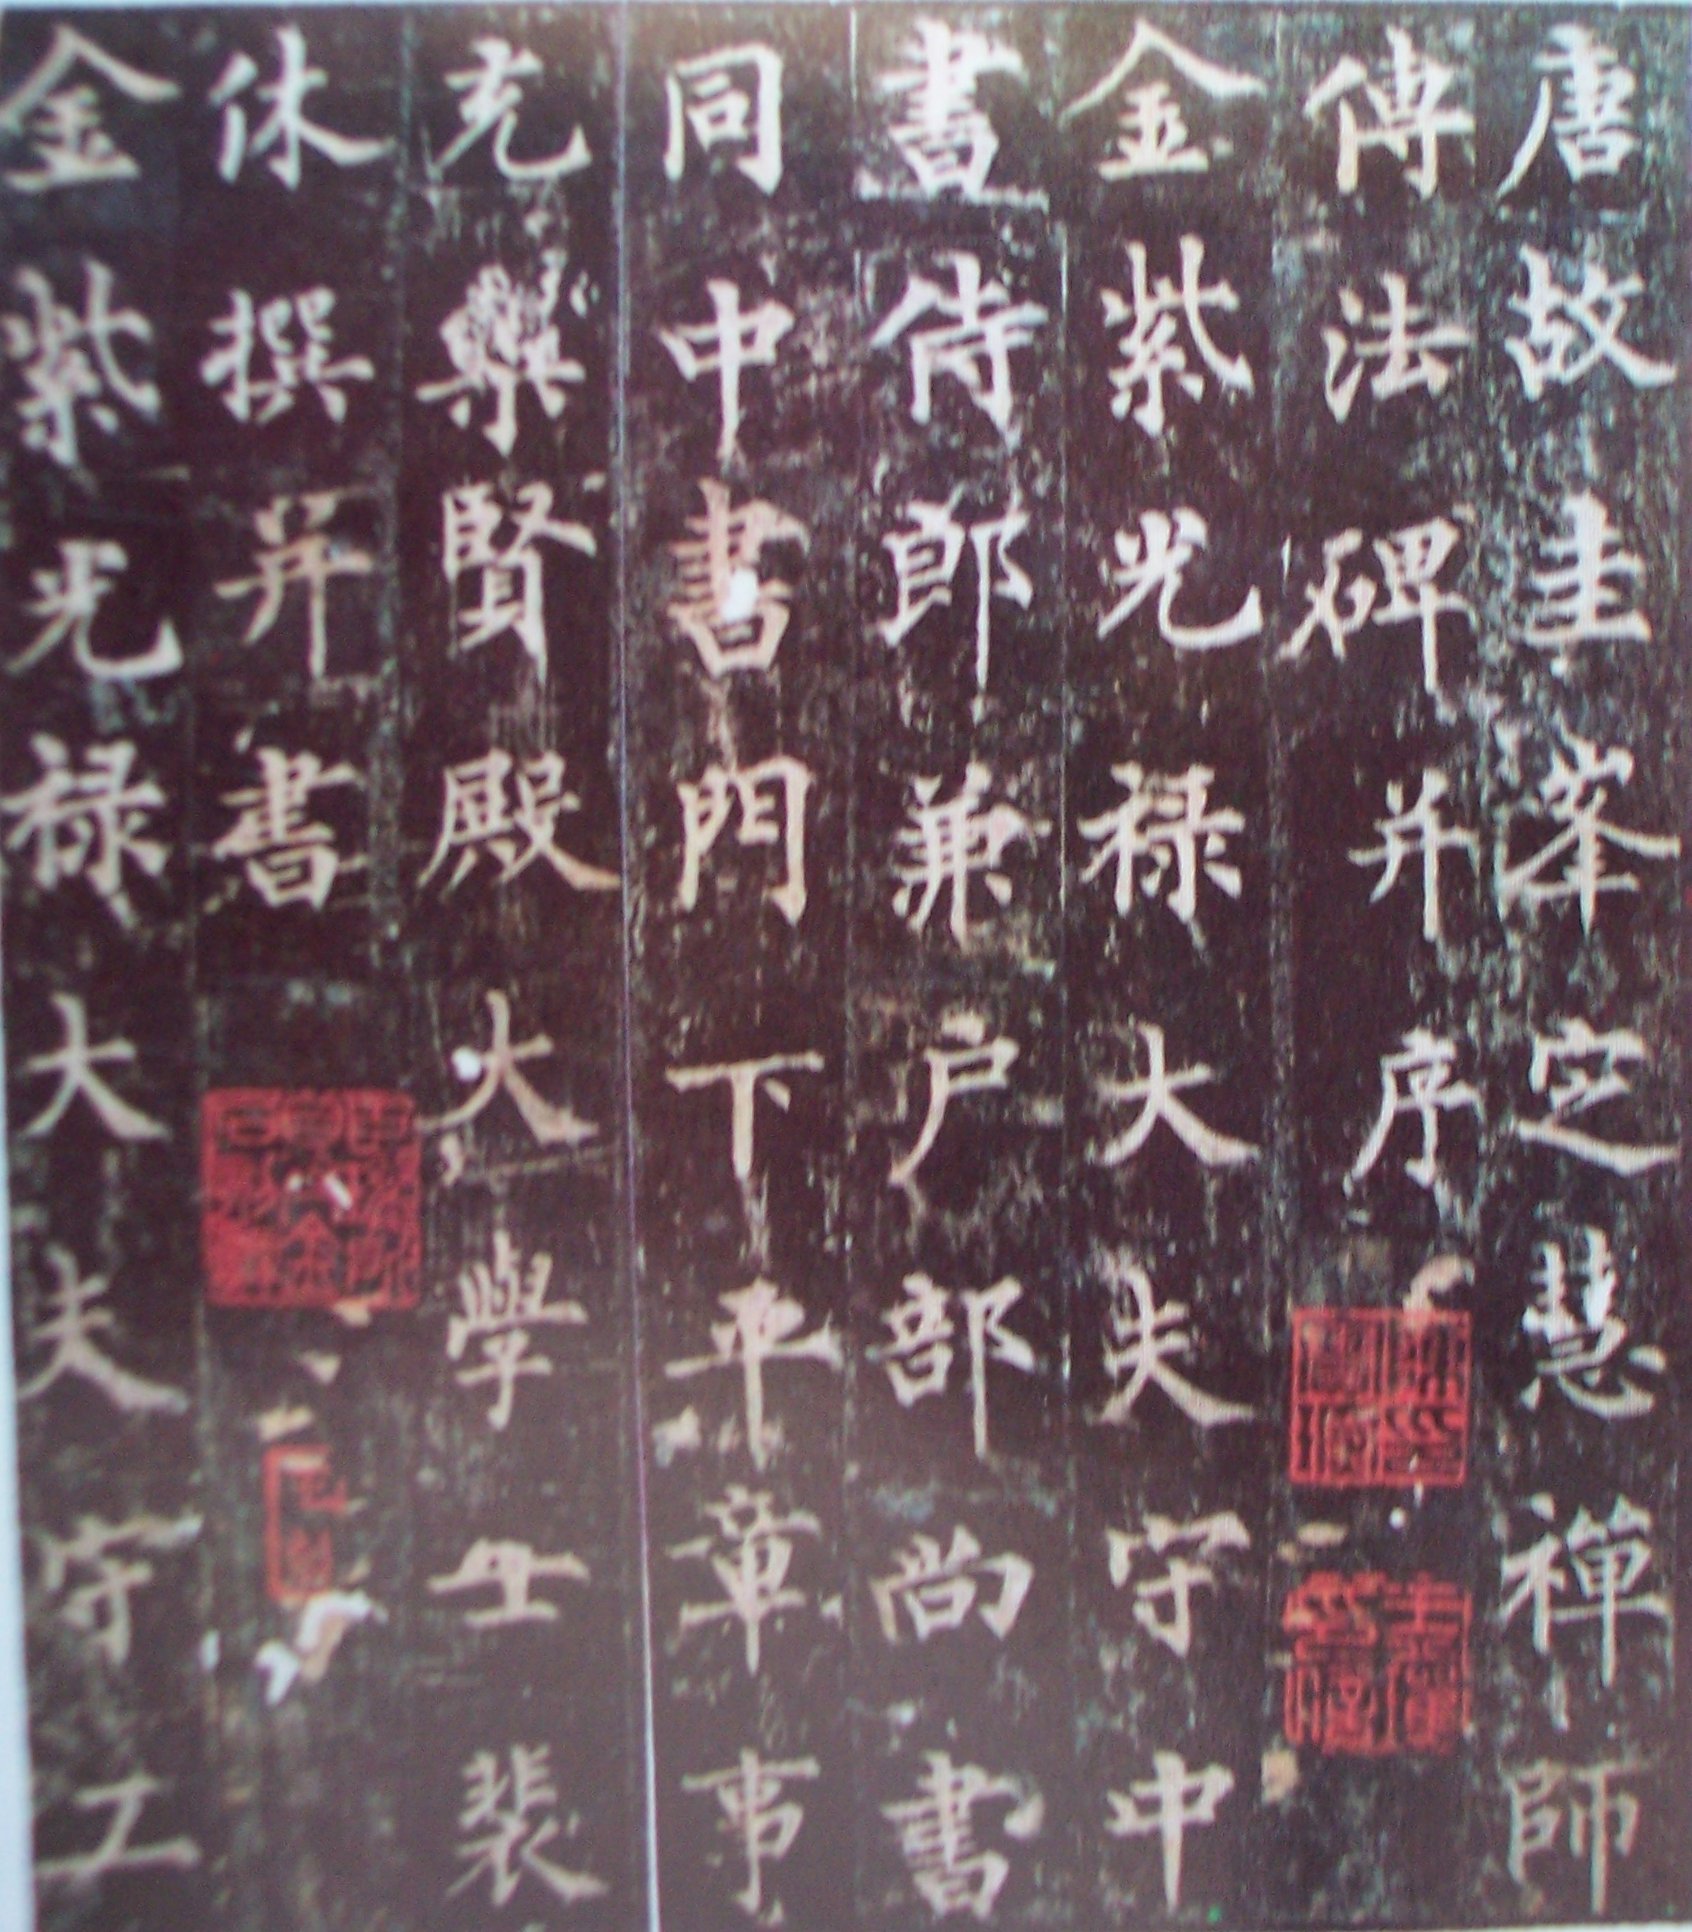 唐故圭峯定慧禪師
傳法碑并序
金紫光禄大夫守中
書侍郎兼户部尚書
同中書門下平章事
充集賢殿大學士裴
休撰并書
金紫光禄大夫守工